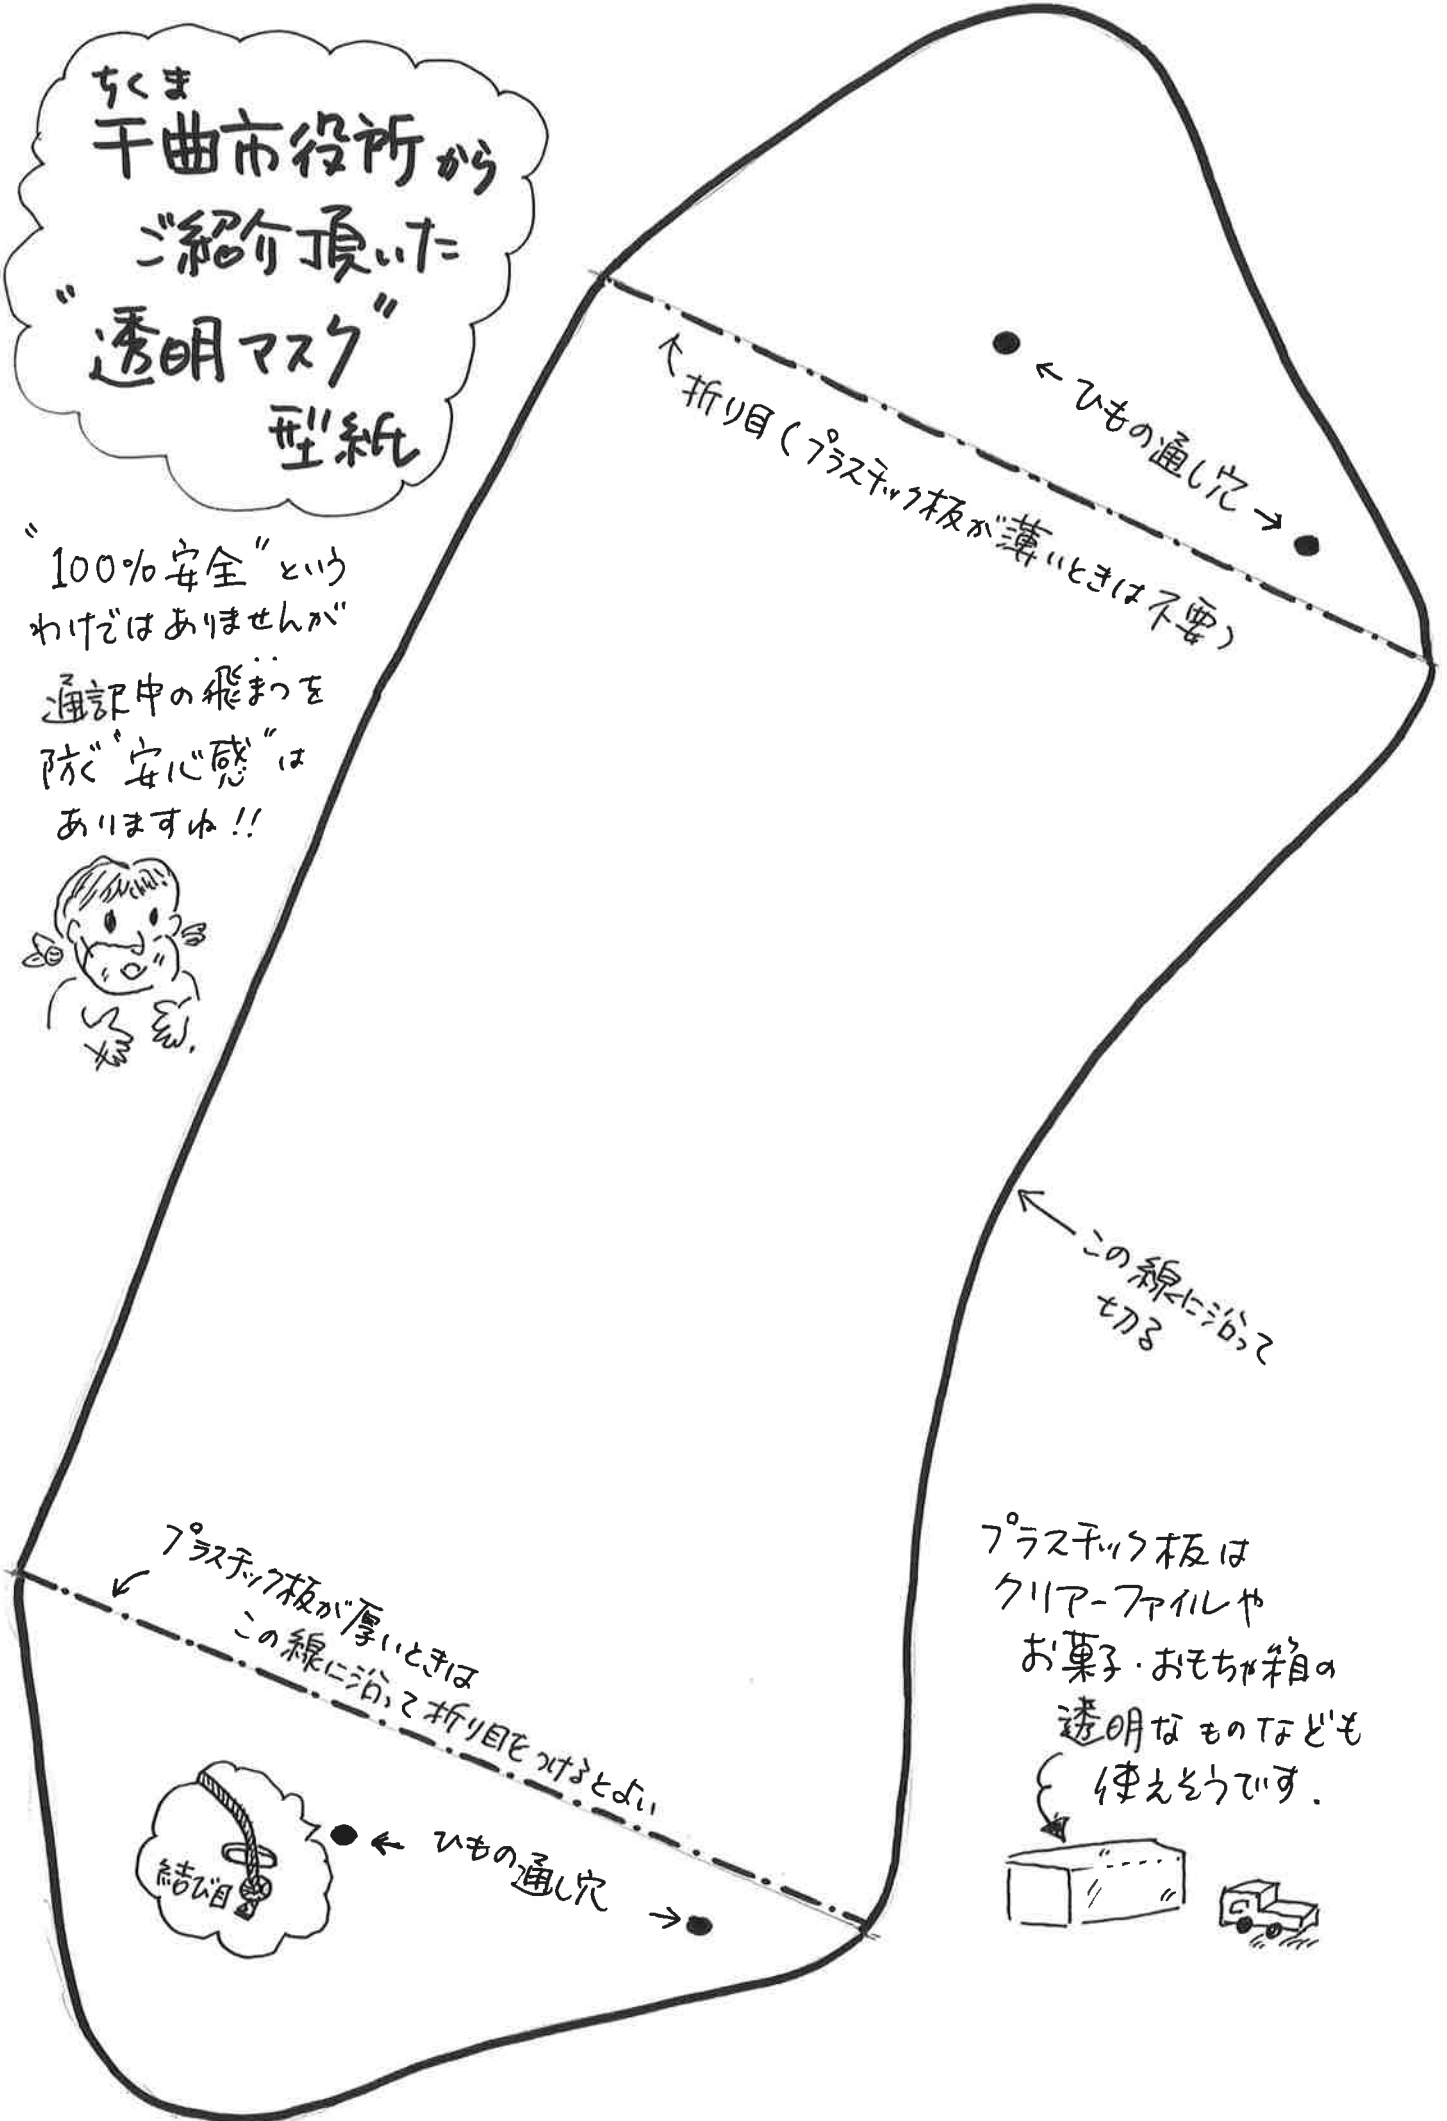 ちくま
千曲市役所から
ご紹介頂いた
"透明マスク"
型紙
"100%安全"という
わけではありませんが
通訳中の飛まつを
防ぐ"安心感"は
ありますね!!
←ひもの通し穴→
↑折り目(プラスチック板が薄いときは不要)
この線に沿って
切る
プラスチック板が厚いときは
この線に沿って折り目をつけるとよい
結び目
← ひもの通し穴 →
プラスチック板は
クリアーファイルや
お菓子・おもちゃ箱の
透明なものなども
使えそうです.